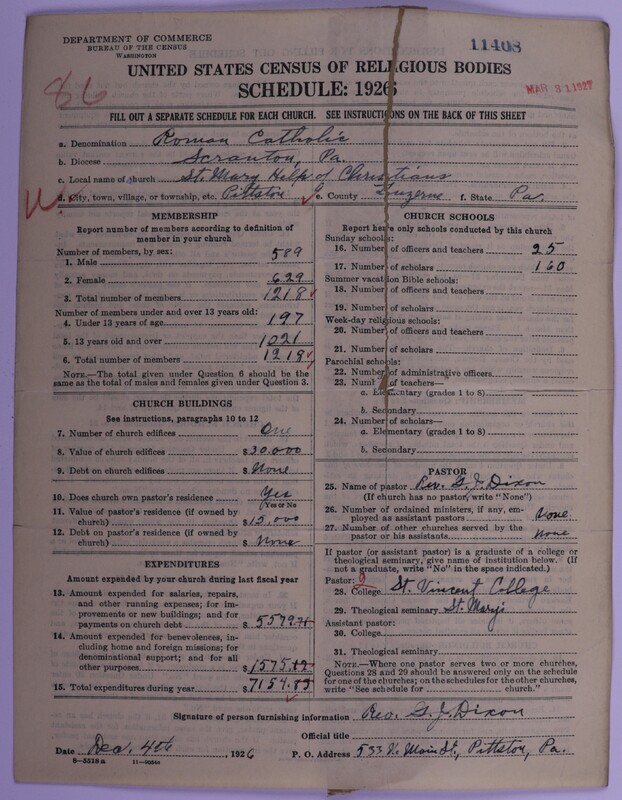 DEPARTMENT OF COMMERCE
BUREAU OF THE CENSUS
WASHINGTON
11408
UNITED STATES CENSUS OF RELIGIOUS BODIES
SCHEDULE: 1926
MAR 31 1927
86
FILL OUT A SEPARATE SCHEDULE FOR EACH CHURCH. SEE INSTRUCTIONS ON THE BACK OF THIS SHEET
a. Denomination Roman Catholic
b. Diocese Scranton, Pa.
c. Local name of church St. Mary Help of Christians
d. City, town, village, or township, etc. Pittston e. County Luzerne f. State Pa.
MEMBERSHIP
Report number of members according to definition of
member in your church
Number of members, by sex:
1. Male 589
2. Female 629
3. Total number of members 1218
Number of members under and over 13 years old:
4. Under 13 years of age 197
5. 13 years old and over 1021
6. Total number of members 1218
NOTE.—The total given under Question 6 should be
same as the total of males and females given under Question 3.
CHURCH BUILDINGS
See instructions, paragraphs 10 to 12
7. Number of church edifices One
8. Value of church edifices $30,000
9. Debt on church edifices $None
10. Does church own pastor's residence Yes
(Yes or No)
11. Value of pastor's residence (if owned by
church) $15,000
12. Debt on pastor's residence (if owned by
church) $None
EXPENDITURES
Amount expended by your church during last fiscal year
13. Amount expended for salaries, repairs,
and other running expenses; for im-
provements or new buildings; and for
payments on church debt $5579.71
14. Amount expended for benevolences,
including home and foreign missions; for
denominational support; and for all
other purposes $1575.12
15. Total expenditures during year $7154.83
CHURCH SCHOOLS
Report here only schools conducted by this church
Sunday schools:
16. Number of officers and teachers 25
17. Number of scholars 160
Summer vacation Bible schools:
18. Number of officers and teachers
19. Number of scholars
Week-day religious schools:
20. Number of officers and teachers
21. Number of scholars
Parochial schools:
22. Number of administrative officers
23. Number of teachers—
a. Elementary (grades 1 to 8)
b. Secondary
24. Number of scholars—
a. Elementary (grades 1 to 8)
b. Secondary
PASTOR
25. Name of pastor Rev. G. J. Dixon
(If church has no pastor, write "None")
26. Number of ordained ministers, if any, em-
ployed as assistant pastors None
27. Number of other churches served by the
pastor or his assistants None
If pastor (or assistant pastor) is a graduate of a college or
theological seminary, give name of institution below. (If
not a graduate, write "No" in the space indicated.)
Pastor: 2
28. College St. Vincent College
29. Theological seminary St. Mary's
Assistant pastor:
30. College
31. Theological seminary
NOTE.—Where one pastor serves two or more churches,
Questions 28 and 29 should be answered only on the schedule
for one of the churches; on the schedules for the other churches,
write "See schedule for church."
Signature of person furnishing information Rev. G. J. Dixon
Official title
Date Dec. 4th, 1926 P. O. Address 533 N. Main St., Pittston, Pa.
8—5518 a